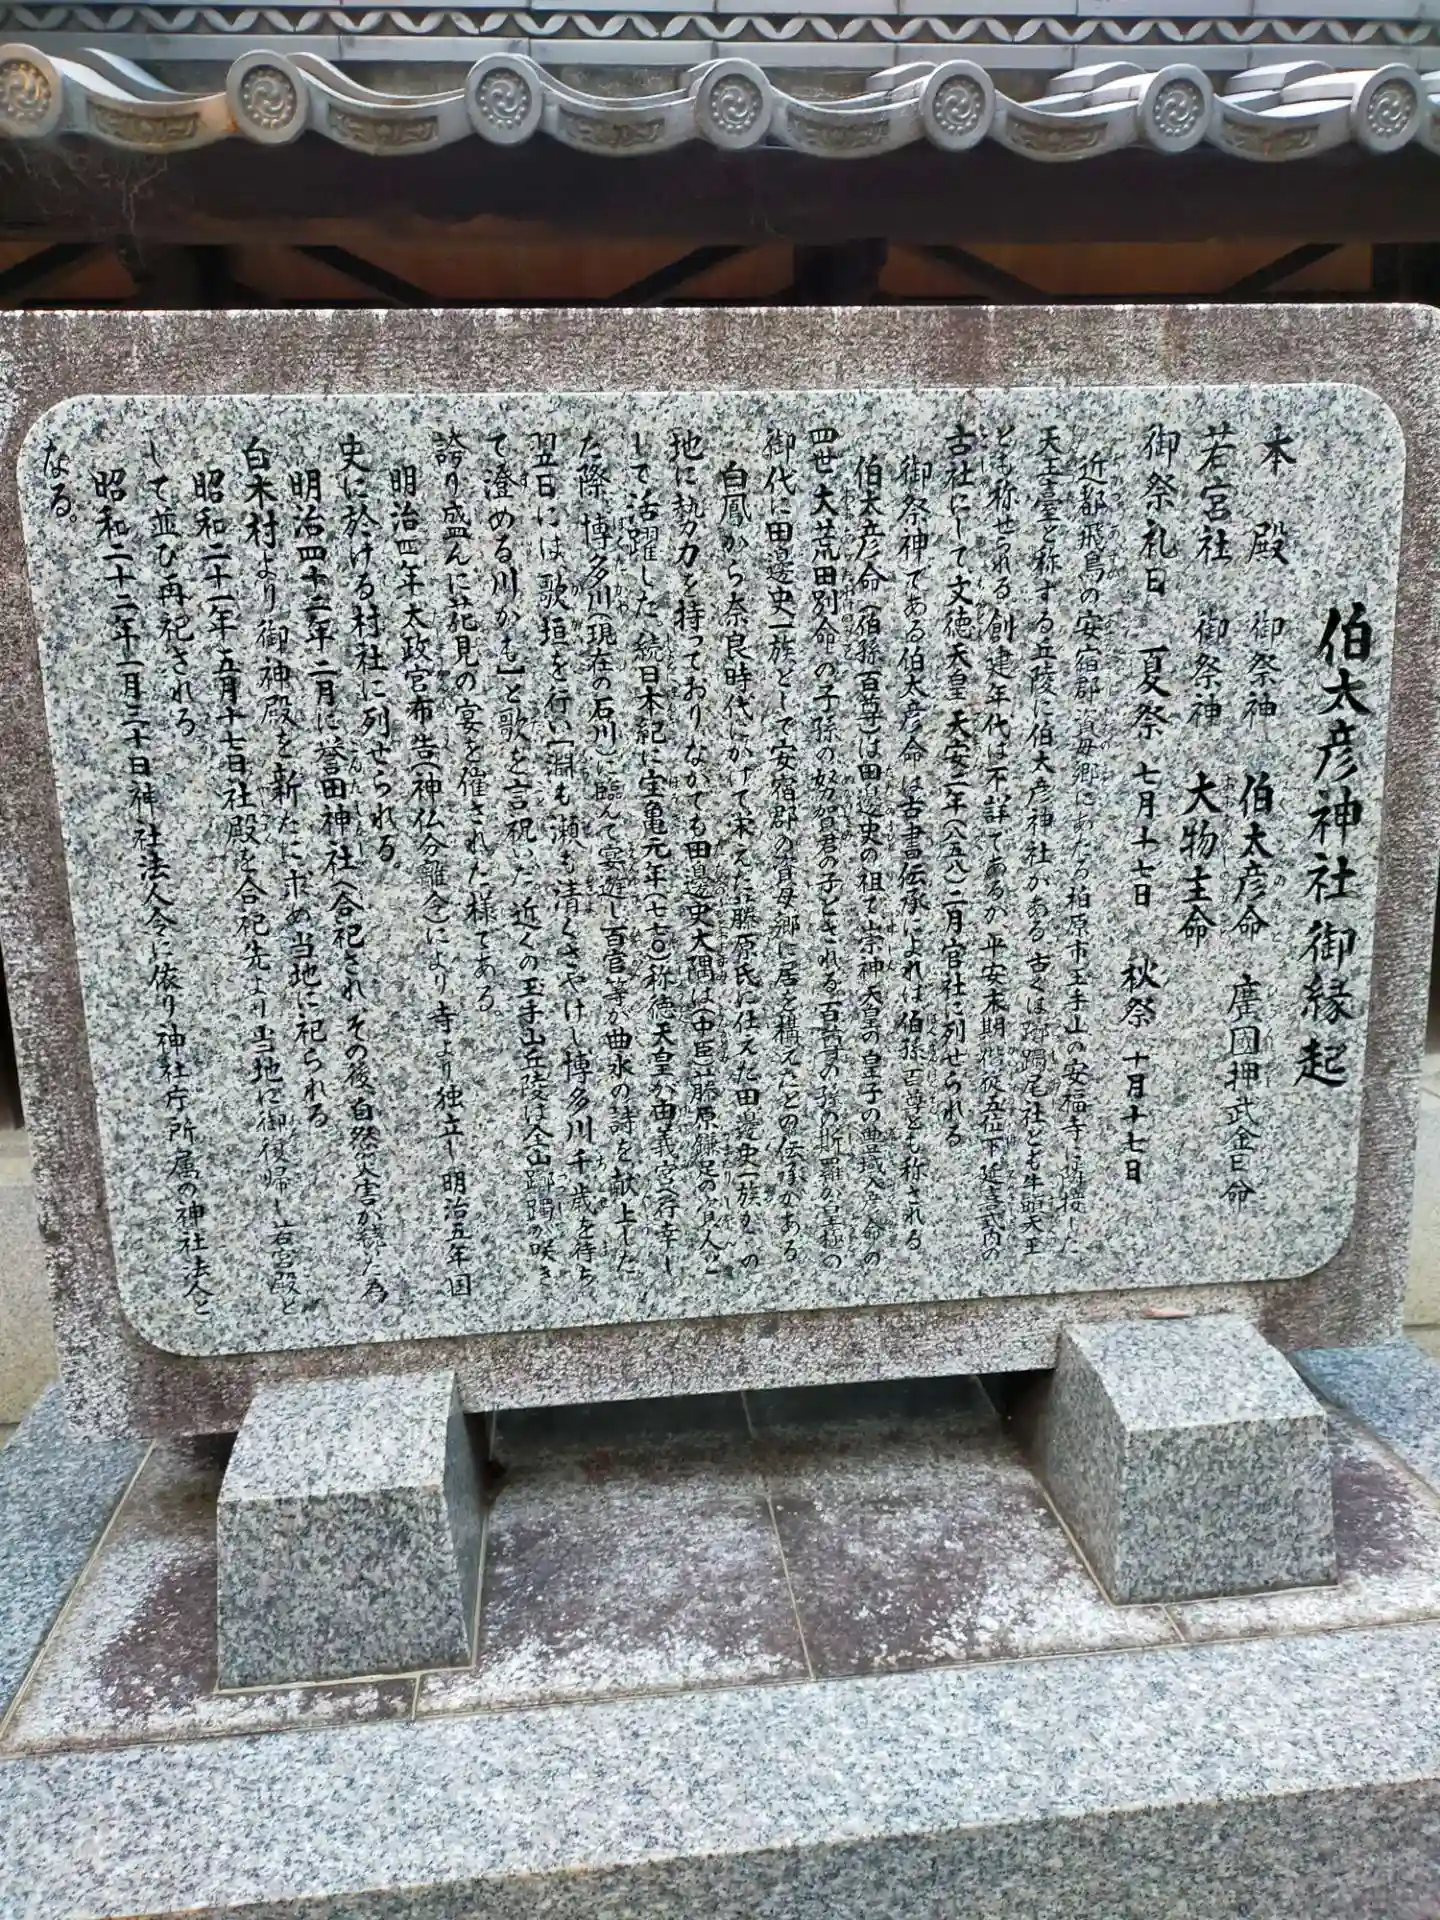 伯太彦神社御縁起
本殿 御祭神 伯太彦命 廣國押武金日命
若宮社 御祭神 大物主命
御祭礼日 夏祭 七月十七日 秋祭 十月十七日
近都飛鳥の安宿郡資母郷にあたる柏原市玉手山の安福寺に隣接した
天王臺と称する丘陵に伯太彦神社がある古くは躑躅尾社とも牛頭天王
とも称せられる創建年代は不詳であるが、平安末期 従五位下延喜式内の
古社にして、文徳天皇 天安二年(八五八)二月官社に列せられる
御祭神である伯太彦命は古書伝承によれば伯孫 百尊とも称される
伯太彦命(伯孫百尊)は田邊史の祖で崇神天皇の皇子の豊城入彦命の
四世大荒田別命の子孫の努賀君の子とされる百尊の孫の斯羅が皇極の
御代に田邊史一族として安宿郡の資母郷に居を構えたとの伝承がある
白鳳から奈良時代にかけて栄えた藤原氏に仕えた田邊史一族がこの
地に勢力を持っておりなかでも田邊史大隅は(中臣)藤原鎌足の宮人と
して活躍した。続日本紀に宝亀元年(七七〇)称徳天皇が由義宮(行幸し
た際、博多川(現在の石川)に臨んで宴遊し百官等が曲水の詩を献上した
翌日には、歌垣を行い[淵も瀬も清くさやけし博多川千歳を待ち
て澄める川かも]と歌を言祝いだ。近くの玉手山丘陵は全山躑躅が咲き
誇り盛んに花見の宴を催された様である。
明治四年太政官布告(神仏分離令)により寺より独立し明治五年国
史に於ける村社に列せられる。
明治四十二年二月に誉田神社(合祀されその後自然災害が続いた為
白木村より御神殿を新たに求め当地に祀られる
昭和二十一年五月十七日社殿を合祀先より当地に御復帰し若宮殿と
して並び再祀される
昭和二十二年一月二十日神社法人令に依り神社庁所属の神社法人と
なる。